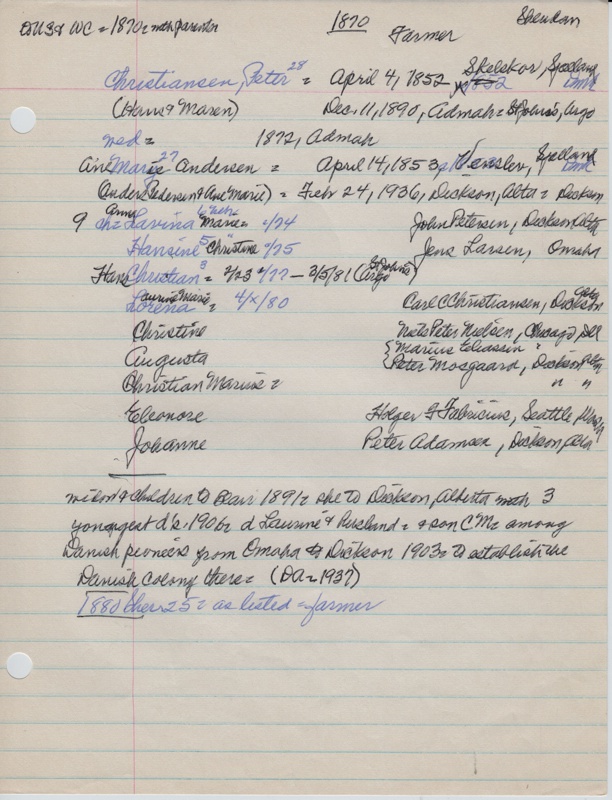 DUS & WC = 1870 = with parents 1870 Sheridan
Farmer
Christiansen, Peter 28 = April 4, 1852 Skelskor, Sjelland Dmk
(Hans & Maren) Dec. 11, 1890, Admah = St Johns, Argo
wed = 1872, Admah
Ane Marie 27 Andersen = April 14, 1853 Venslev, Sjelland Dmk
(Anders Pedersen & Ane Marie) = Febr 24, 1936, Dickson, Alta = Dickson
9 ch = Anna Lavina 6 Marie = /74 John Petersen, Dickson Alta
Hansine 5 Christine /75 Jens Larsen, Omaha
Hans Christian 3 = 2/23 /77 – 3/5/81 (St Johns Argo)
Laurine Marie Lorena = 4/x/80 Carl C Christiansen, Dickson
Christine Niels Peter Nielsen, Chicago, Ill
Augusta { Marius Eliassen
{ Peter Mosgaard, Dickson Alta
Christian Marius = " "
Eleonore Holger F Fabricius, Seattle, Wash
Johanne Peter Adamsen, Dickson, Alta
widow & children to Blair 1891 = she to Dickson, Alberta with 3
youngest d's, 1906 = d Laurine & husband = & son CM = among
Danish pioneers from Omaha to Dickson 1903 = to establish the
Danish Colony there = (DA = 1937)
1880 Cher 25 = as listed = farmer